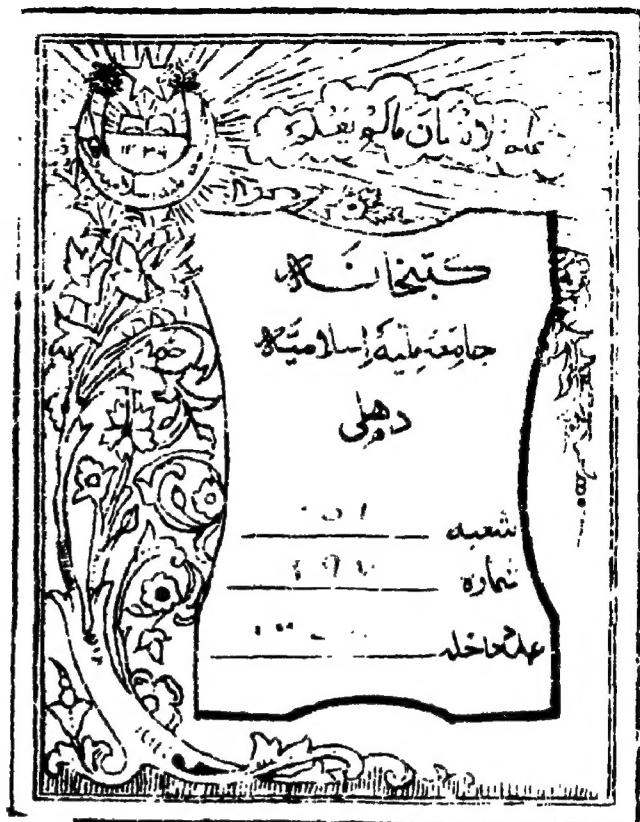 علم الانسان مالم يعلم
كتبخانه
جامعه مليه اسلاميه
دهلی
شعبه
شماره
عدد داخله